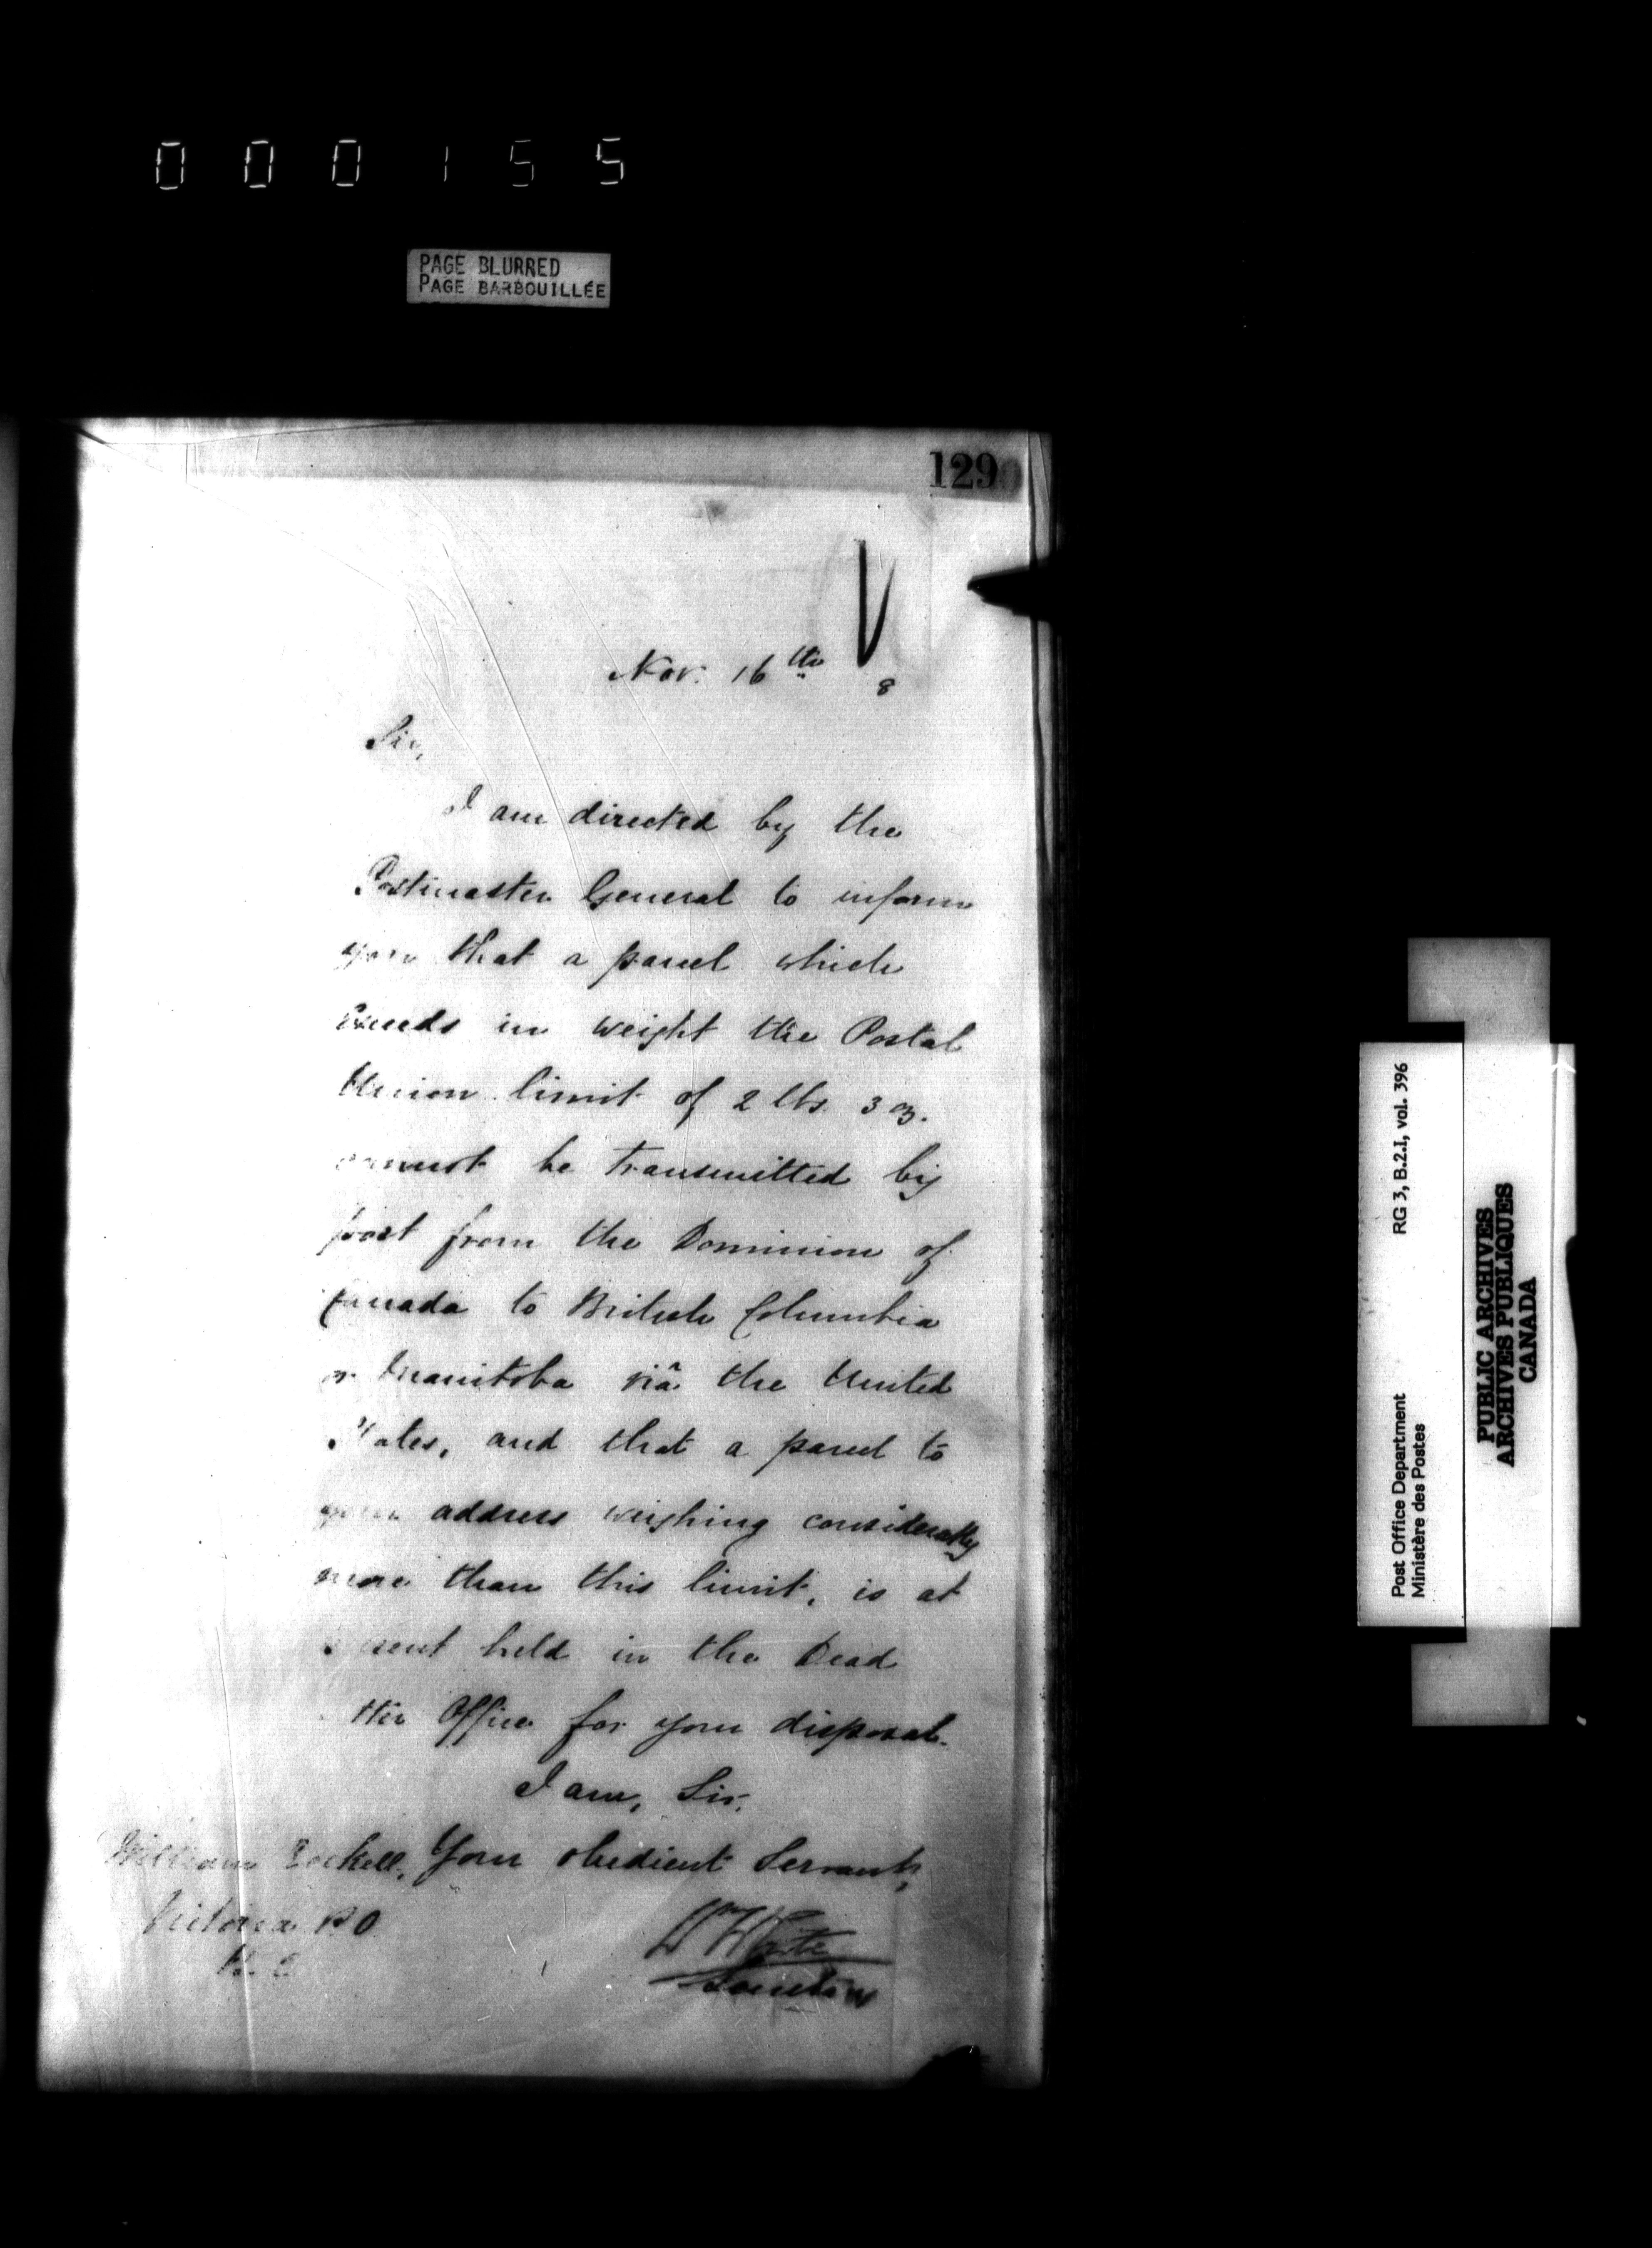 000155
PAGE BLURRED
PAGE BARBOUILLÉE
129
Nov. 16th 8
Sir,
I am directed by the
Postmaster General to inform
you that a parcel which
Exceeds in weight the Postal
Union limit of 2 lbs. 3 oz.
cannot be transmitted by
post from the Dominion of
Canada to British Columbia
or Manitoba viâ the United
States, and that a parcel to
your address weighing considerably
more than this limit, is at
present held in the Dead
tter Office for your disposal.
I am, Sir,
Your obedient Servant,
William
Victoria P O
B. C.
Wm White
Secretary
RG 3, B.2.I, vol. 396
Post Office Department
Ministère des Postes
PUBLIC ARCHIVES
ARCHIVES PUBLIQUES
CANADA